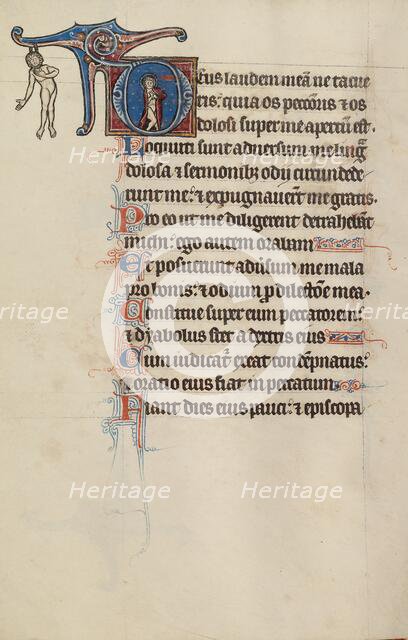 Deus laudem meā ne tacue
ris: quia os pecc̄oris & os
dolosi super me apertū est.
Loquuti sunt aduersum me lingᷓ
dolosa & sermonibꝫ odii circundede
runt me: & expugnauer̄t me gratis.
Pro eo ut me diligerent detrahebāt
michi: ego autem orabam
Et posuerunt aduersum me mala
pro bonis: & odium p̄ dilectōne mea.
Constitue super eum peccatorem:
& dyabolus stet a dextris eius
Cum iudicat᷑ exeat condēpnatus:
& oratio eius fiat in peccatum
Fiant dies eius pauci: & episcopa
Heritage Heritage
Heritage Heritage Heritage
Heritage Heritage